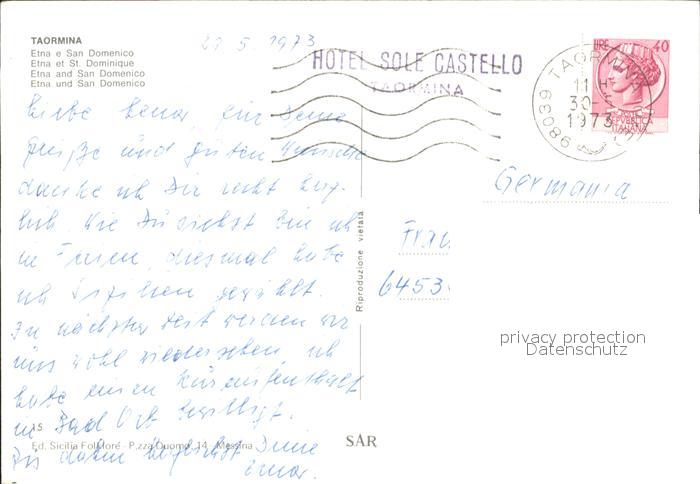 TAORMINA
Etna e San Domenico
Etna et St. Dominique
Etna and San Domenico
Etna und San Domenico
5. 1973
HOTEL SOLE CASTELLO
TAORMINA
LIRE 40
POSTE
REPUBBLICA
ITALIANA
98039 TAORMINA
11
30-5
1973
Liebe Lena für Deine
Grüße und guten Wünsche
danke ich Dir recht herz-
lich. Wie Du siehst bin ich
in Ferien, diesmal habe
ich Sizilien gewählt.
In nächster Zeit werden wir
uns wohl wiedersehen, ich
habe einen Kuraufenthalt
in Bad Orb bewilligt.
Bis dahin herzlichst Deine
Germania
Frau
6453
Riproduzione vietata
privacy protection
Datenschutz
15
Ed. Sicilia Folklore - P.zza Duomo, 14 - Messina
SAR